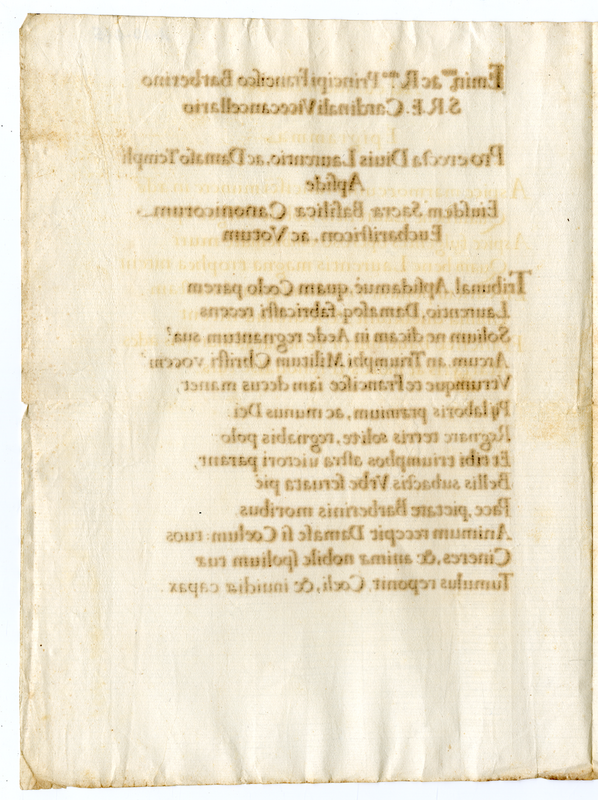 Emin.mo ac R.mo Principi Francisco Barberino
S. R. E. Cardinali Vicecancellario
Pro erecta Diuis Laurentio, ac Damaso Templi
Apside
Eiusdem Sacræ Basilicæ Canonicorum
Eucharisticon, ac Votum
Tribunal, Apsidamuè, quam Coelo parem
Laurentio, Damasoq. fabricasti recens
Solium ne dicam in Aede regnantum sua?
Arcum, an Triumphi Militum Christi vocem?
Vtrumque re Francisce iam decus manet,
Pij laboris præmium, ac munus Dei.
Regnare terris solite, regnabis polo
Et tibi triumphos astra uictori parant,
Bellis subactis Vrbe seruata piè
Pace, pietate Barberinis moribus.
Animum recepit Damase si Coelum: tuos
Cineres, &, animæ nobile solium tuæ
Tumulus reponit, Coeli, &, inuidiæ capax.